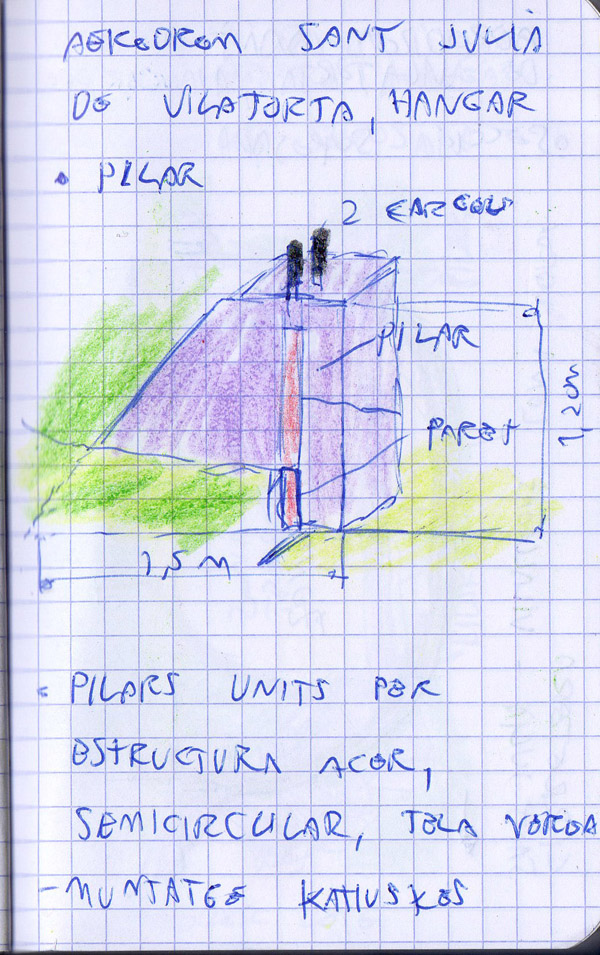 AERODROM SANT JULIÀ
DE VILATORTA, HANGAR
• PILAR
2 CARGOLS
PILAR
PARET
1,20m
1,5 M
• PILARS UNITS PER
ESTRUCTURA ACER,
SEMICIRCULAR, TELA VERDA
- MUNTATGE KATIUSKES